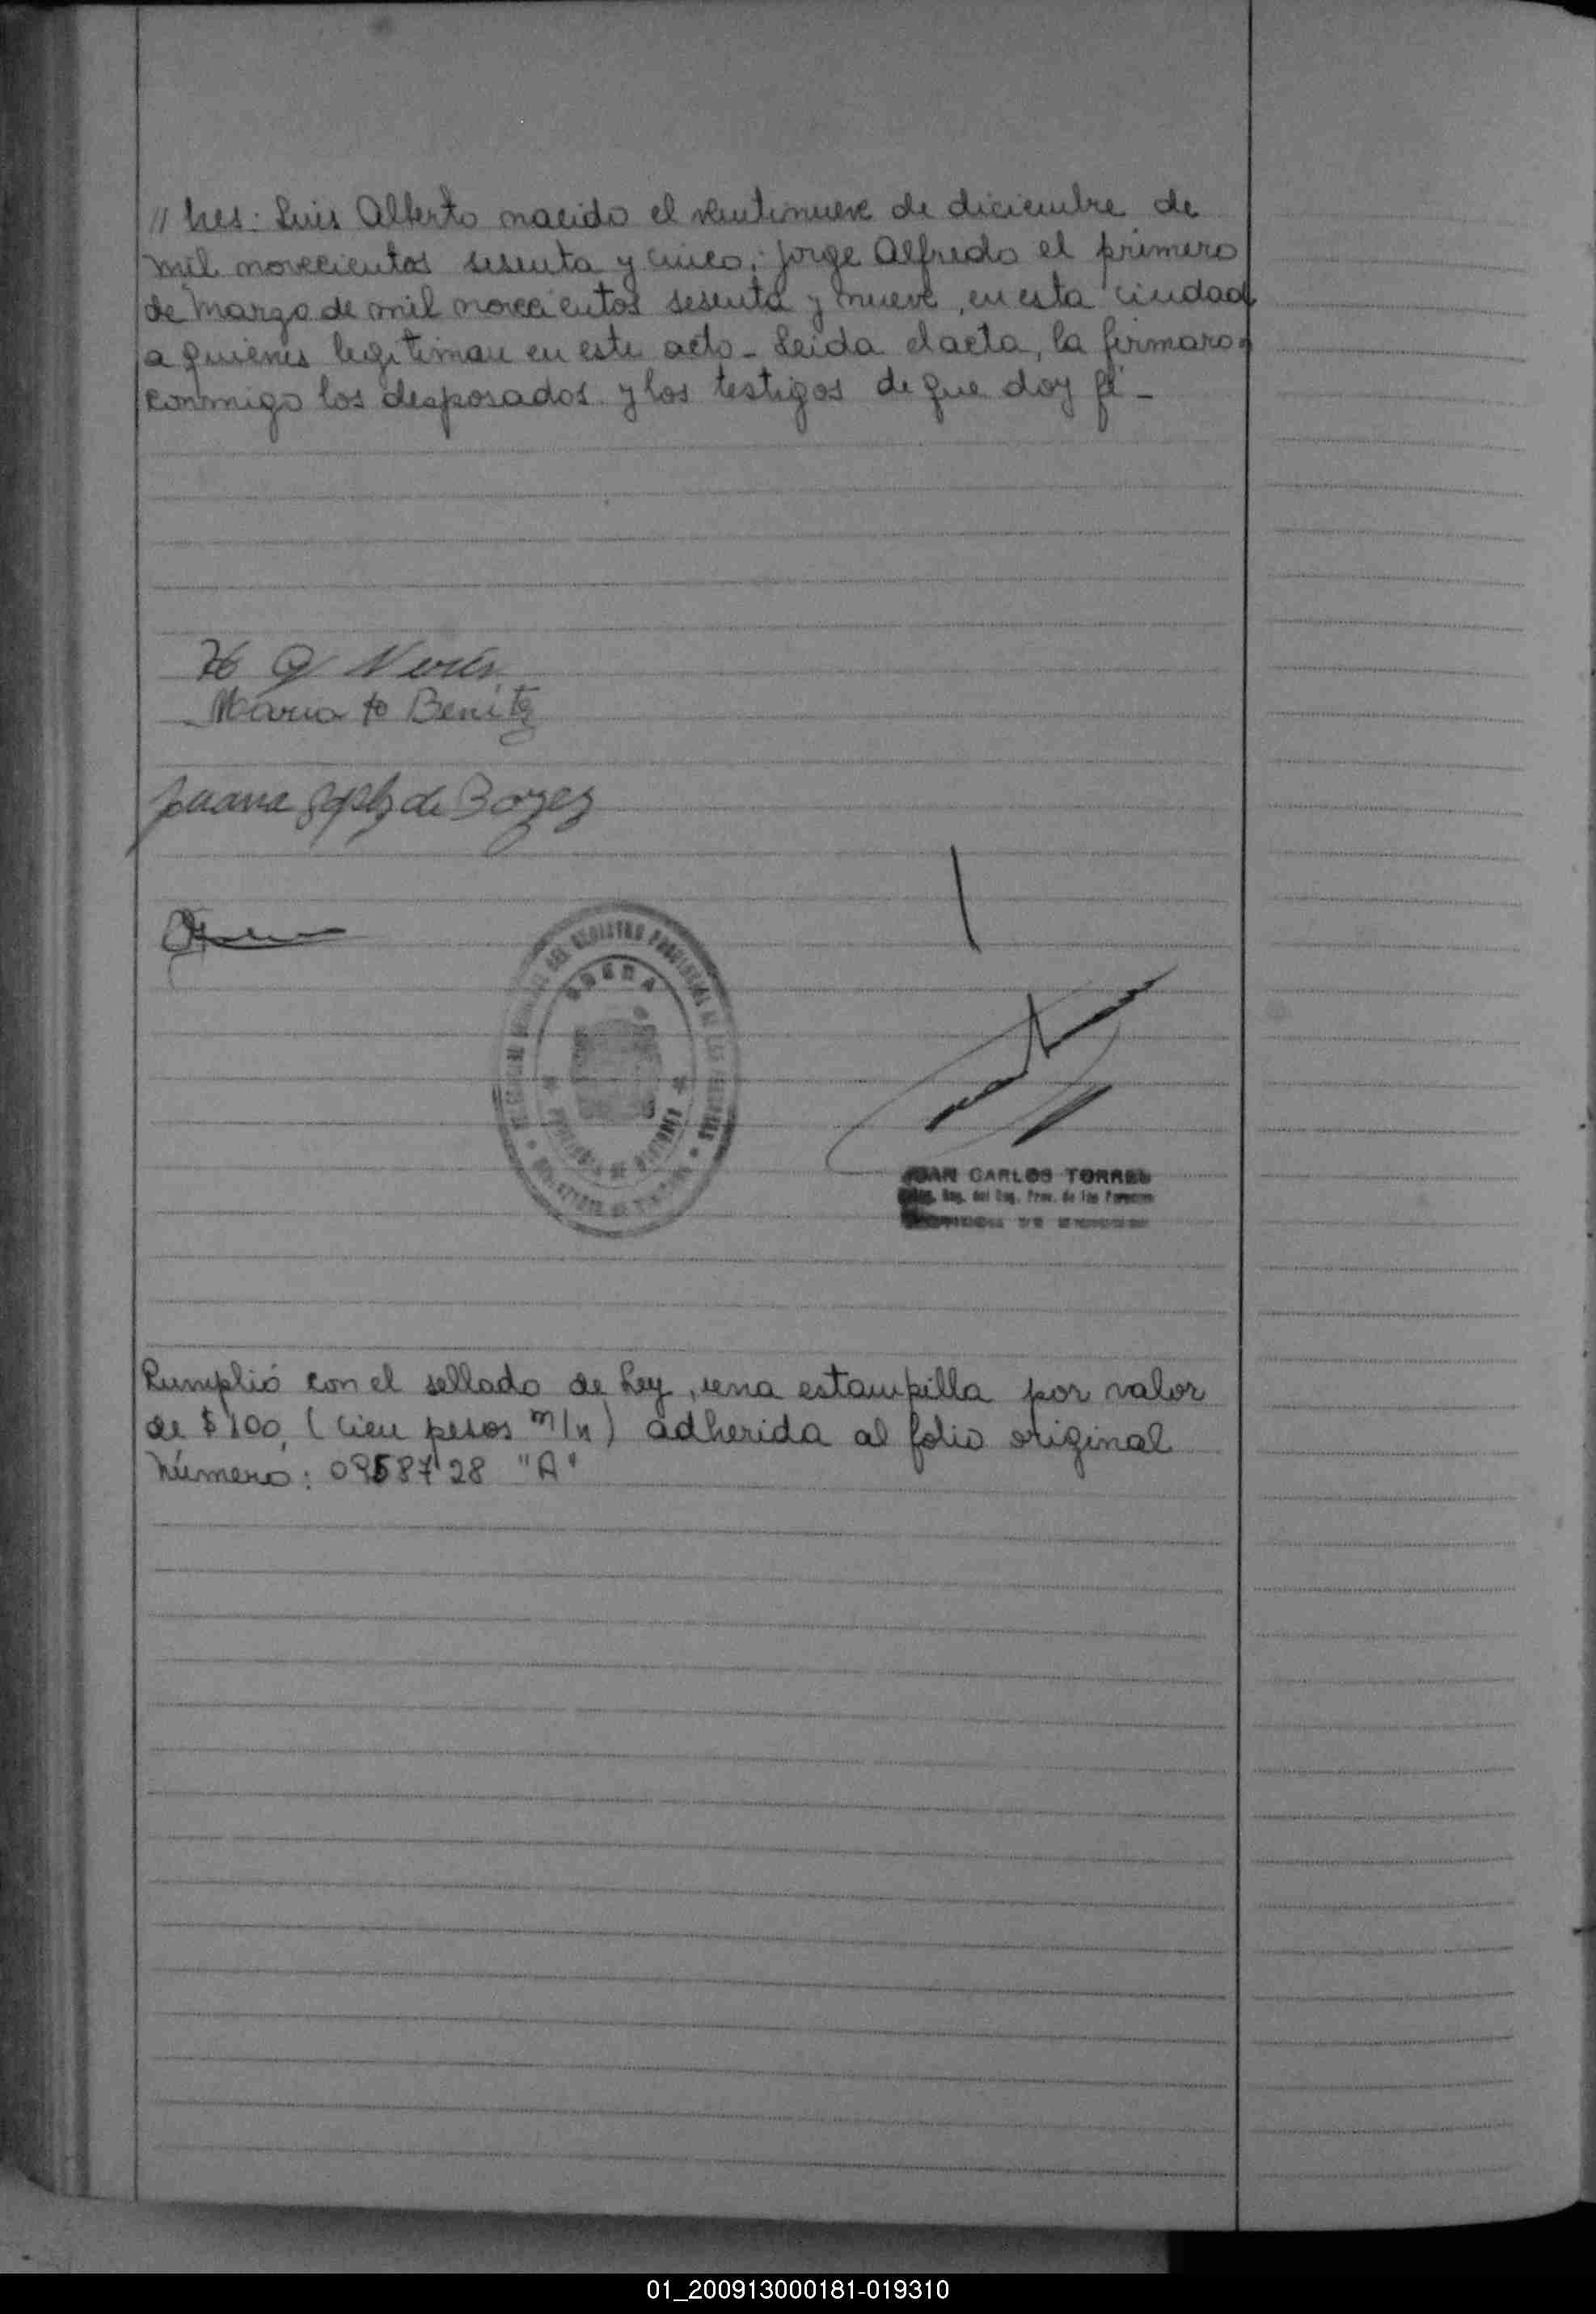 // bres: Luis Alberto nacido el veintinueve de diciembre de
mil novecientos sesenta y cinco; Jorge Alfredo el primero
de Marzo de mil novecientos sesenta y nueve, en esta ciudad
a quienes legitiman en este acto - Leida el acta, la firmaron
conmigo los desposados y los testigos de que doy fé -
Maria Benitz
Juana de
DEL REGISTRO PROVINCIAL DE LAS PERSONAS
PROVINCIA DE
JUAN CARLOS TORRES
del Reg. Prov. de las Personas
Cumplió con el sellado de Ley, una estampilla por valor
de $ 100, (cien pesos m/n) adherida al folio original
Número: 0958728 "A"
01_200913000181-019310